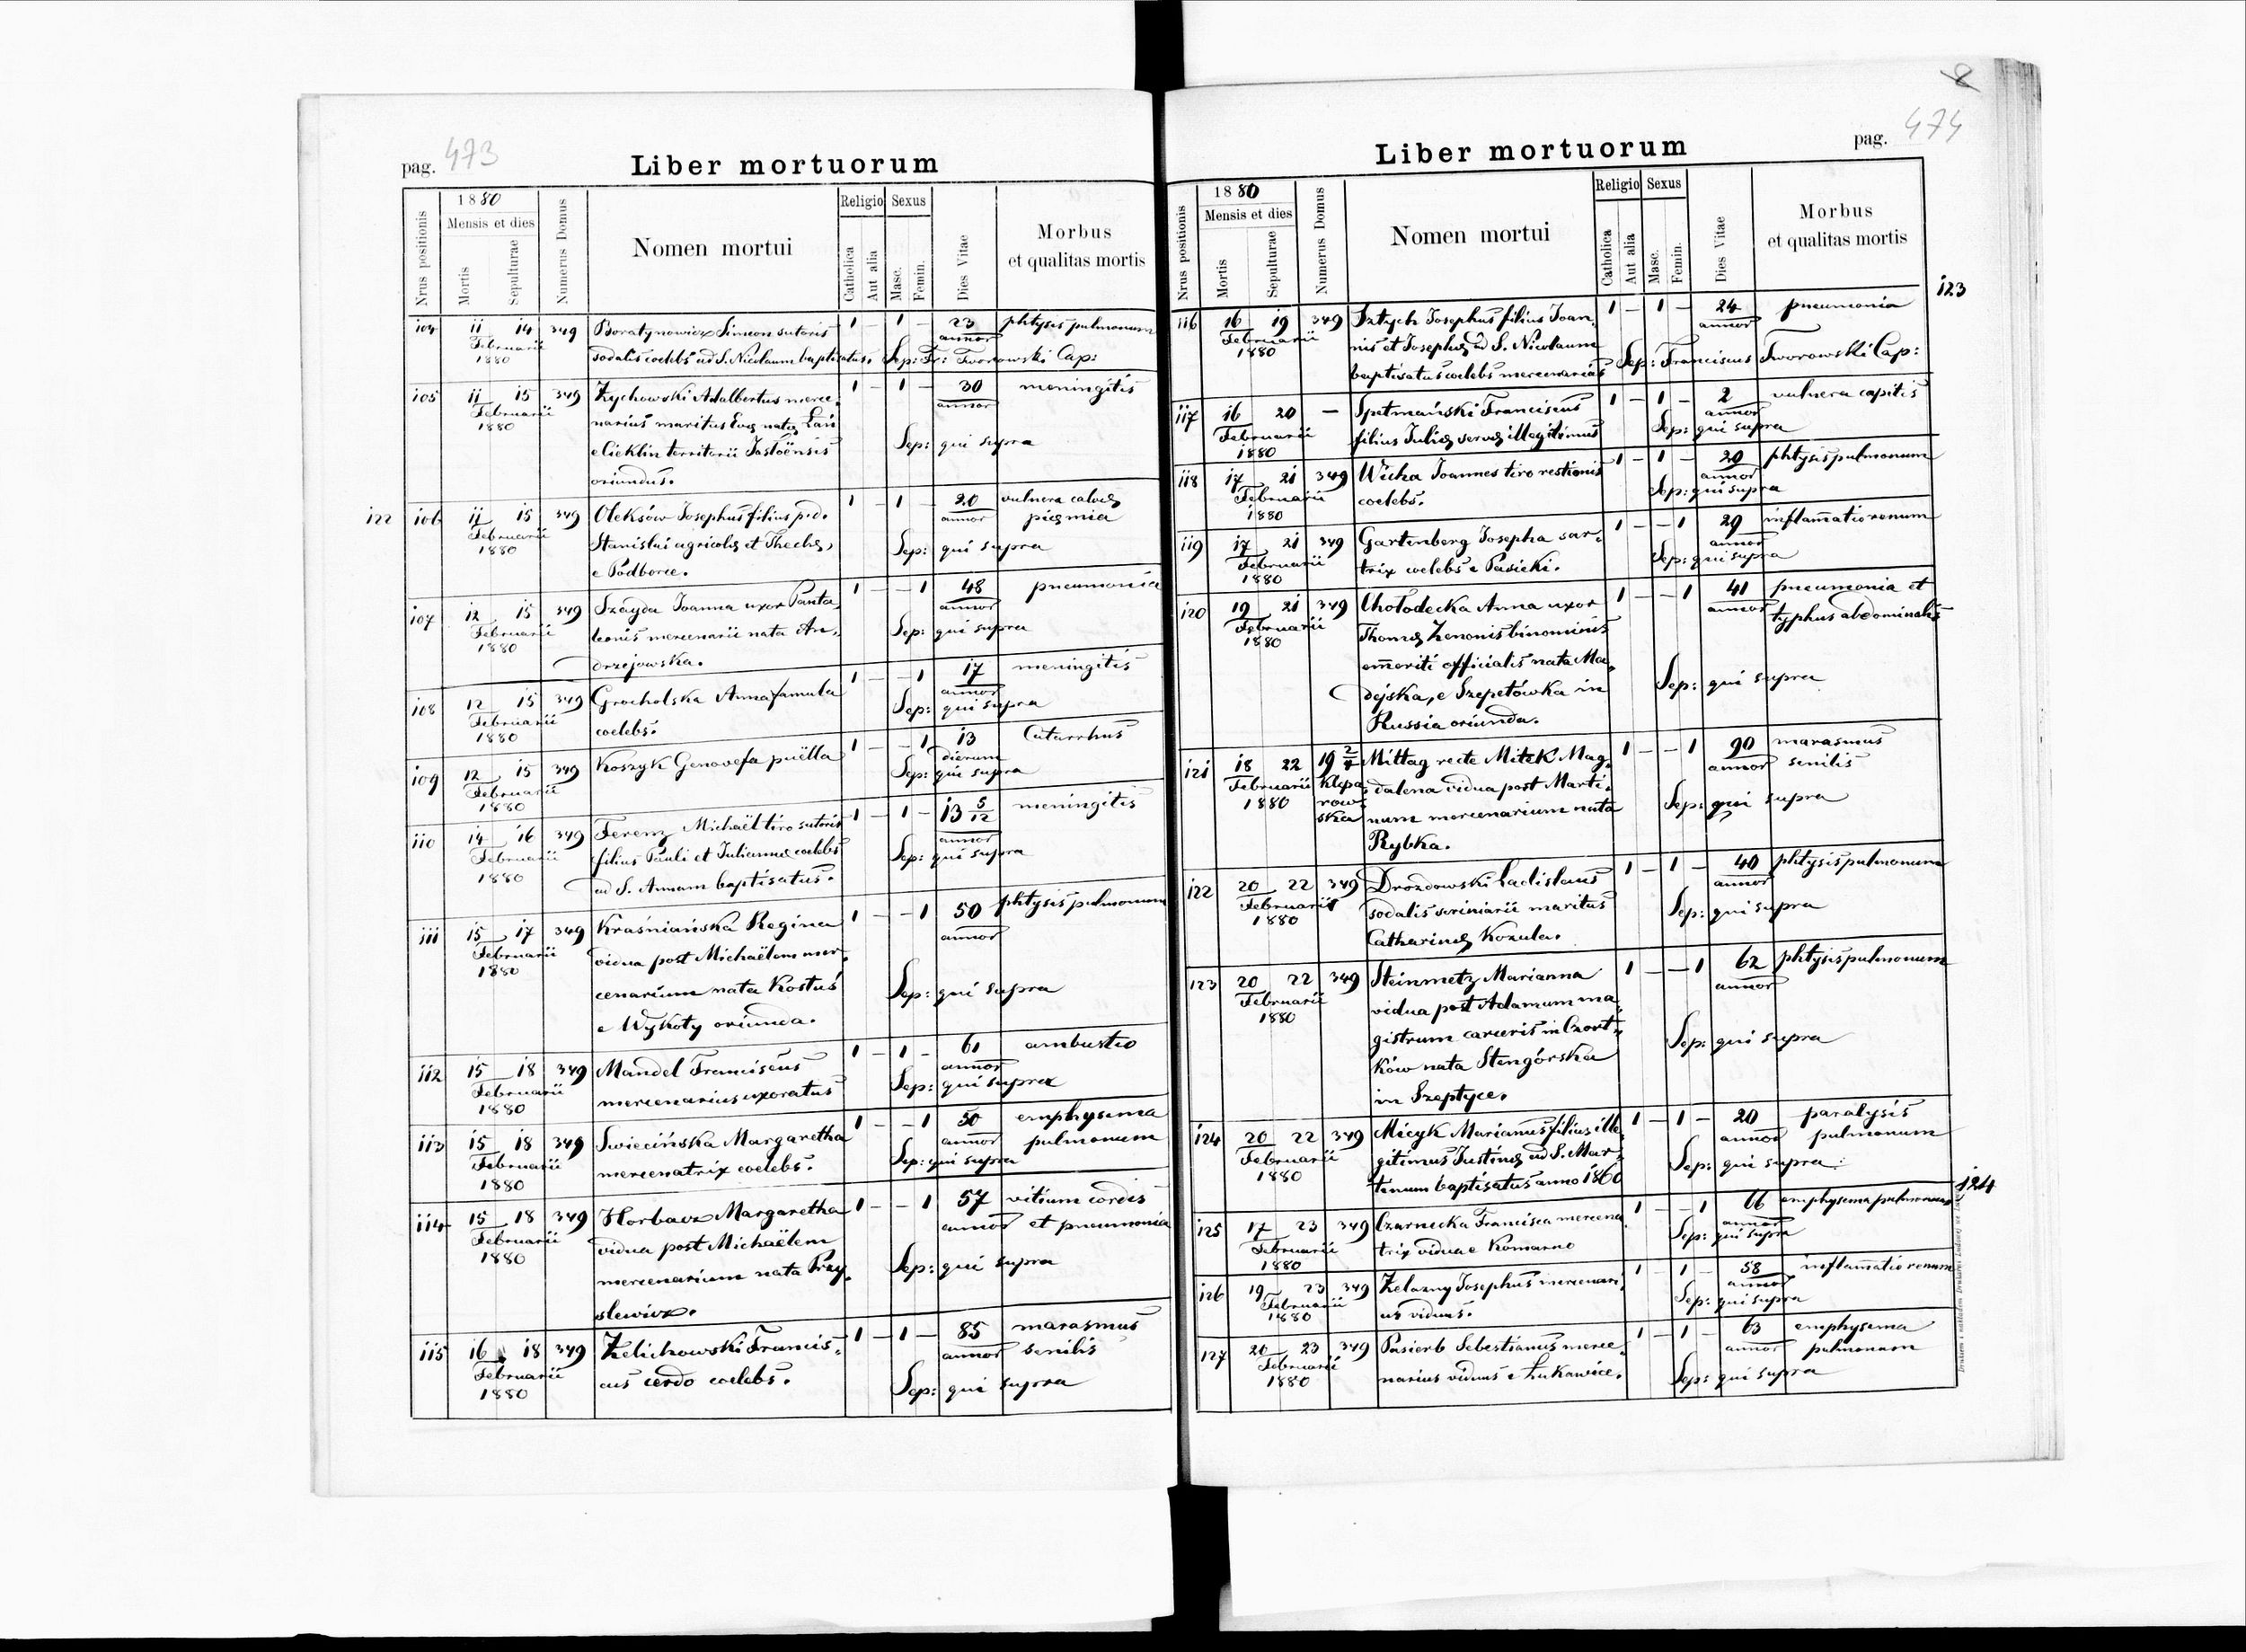 pag. 473
Liber mortuorum
Nrus positionis
1880
Mensis et dies
Mortis
Sepulturae
Numerus Domus
Nomen mortui
Religio
Catholica
Aut alia
Sexus
Masc.
Femin.
Dies Vitae
Morbus
et qualitas mortis
104 11 14 349 Boratynowicz Simeon sutoris 1 – 1 – 23 phtysis pulmonum
Februarii annor
1880 sodalis coelebs ad S. Nicolaum baptisatus. Sep: Fr: Tworowski Cap:
105 11 15 349 Zychowski Adalbertus merce, 1 – 1 – 30 meningitis
Februarii narius maritus Evę natę Łań annor
1880 e Cieklin territorii Jasłoënsis Sep: qui supra
oriundus.
122 106 11 15 349 Oleksów Josephus filius p.d. 1 – 1 – 20 vulnera calvę
Februarii Stanislai agricolę et Theclę, annor pięmia
1880 e Podborce. Sep: qui supra
107 12 15 349 Szayda Joanna uxor Panta, 1 – – 1 48 pneumonia
Februarii leonis mercenarii nata An, annor
1880 drzejowska. Sep: qui supra
108 12 15 349 Grocholska Anna famula 1 – – 1 17 meningitis
Februarii coelebs. annor
1880 Sep: qui supra
109 12 15 349 Koszyk Genovefa puëlla 1 – – 1 13 Catarrhus
Februarii dierum
1880 Sep: qui supra
110 14 16 349 Ferenz Michaël tiro sutoris 1 – 1 – 13 5/12 meningitis
Februarii filius Pauli et Juliannę coelebs annor
1880 ad S. Annam baptisatus. Sep: qui supra
111 15 17 349 Kraśniańska Regina 1 – – 1 50 phtysis pulmonum
Februarii vidua post Michaëlem mer, annor
1880 cenarium nata Kostuś Sep: qui supra
e Wykoty oriunda.
112 15 18 349 Mandel Franciscus 1 – 1 – 61 ambustio
Februarii mercenarius uxoratus annor
1880 Sep: qui supra
113 15 18 349 Swiecińska Margaretha 1 – – 1 50 emphysema
Februarii mercenatrix coelebs. annor pulmonum
1880 Sep: qui supra
114 15 18 349 Horbacz Margaretha 1 – – 1 57 vitium cordis
Februarii vidua post Michaëlem annor et pneumonia
1880 mercenarium nata Przy, Sep: qui supra
slewicz.
115 16 18 349 Zelichowski Francis, 1 – 1 – 85 marasmus
Februarii cus cerdo coelebs. annor senilis
1880 Sep: qui supra
8
pag. 474
Liber mortuorum
Nrus positionis
1880
Mensis et dies
Mortis
Sepulturae
Numerus Domus
Nomen mortui
Religio
Catholica
Aut alia
Sexus
Masc.
Femin.
Dies Vitae
Morbus
et qualitas mortis
123
116 16 19 349 Sztych Josephus filius Joan, 1 – 1 – 24 pneumonia
Februarii nis et Josephę ad S. Nicolaum annor
1880 baptisatus coelebs mercenarius Sep: Franciscus Tworowski Cap:
117 16 20 – Spetmański Franciscus 1 – 1 – 2 vulnera capitis
Februarii filius Julię servę illegitimus annor
1880 Sep: qui supra
118 17 21 349 Wicha Joannes tiro restionis 1 – 1 – 20 phtysis pulmonum
Februarii coelebs. annor
1880 Sep: qui supra
119 17 21 349 Gartenberg Josepha sar, 1 – – 1 29 inflamatio renum
Februarii trix coelebs e Pasieki. annor
1880 Sep: qui supra
120 19 21 349 Chołodecka Anna uxor 1 – – 1 41 pneumonia et
Februarii Thomę Zenonis binominis annor typhus abdominalis
1880 emeriti officialis nata Ma,
dejska, e Szepetówka in Sep: qui supra
Russia oriunda.
121 18 22 19 2/4 Mittag recte Mitek Mag, 1 – – 1 90 marasmus
Februarii Klepa, dalena vidua post Marti, annor senilis
1880 row, num mercenarium nata Sep: qui supra
ska Rybka.
122 20 22 349 Drozdowski Ladislaus 1 – 1 – 40 phtysis pulmonum
Februarii sodalis scriniarii maritus annor
1880 Catharinę Kozula. Sep: qui supra
123 20 22 349 Steinmetz Marianna 1 – – 1 62 phtysis pulmonum
Februarii vidua post Adamum ma, annor
1880 gistrum carceris in Czort,
ków nata Stengórska Sep: qui supra
in Szeptyce.
124 20 22 349 Micyk Marianus filius ille, 1 – 1 – 20 paralysis
Februarii gitimus Justinę ad S. Mar, annor pulmonum
1880 tinum baptisatus anno 1860 Sep: qui supra
124
125 17 23 349 Czarnecka Francisca mercena, 1 – – 1 66 emphysema pulmonum
Februarii trix vidua e Komarno annor
1880 Sep: qui supra
126 19 23 349 Zelazny Josephus mercenari, 1 – 1 – 58 inflamatio renum
Februarii us viduus. annor
1880 Sep: qui supra
127 20 23 349 Pasierb Sebestianus merce, 1 – 1 – 63 emphysema
Februarii narius viduus e Łukawice. annor pulmonum
1880 Sep: qui supra